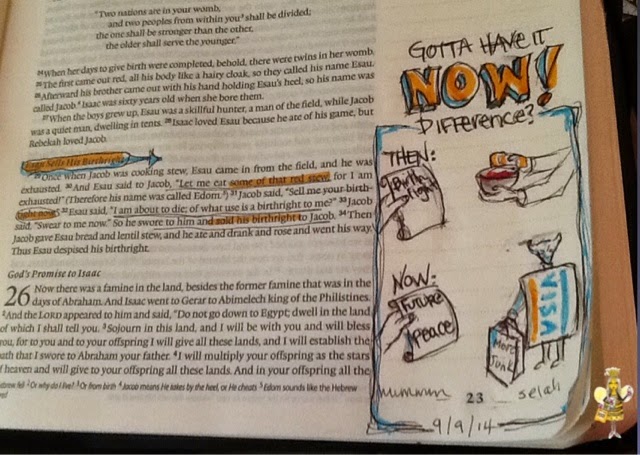 "Two nations are in your womb,
and two peoples from within you shall be divided;
the one shall be stronger than the other,
the older shall serve the younger."
24 When her days to give birth were completed, behold, there were twins in her womb.
25 The first came out red, all his body like a hairy cloak, so they called his name Esau.
26 Afterward his brother came out with his hand holding Esau's heel, so his name was
called Jacob. Isaac was sixty years old when she bore them.
27 When the boys grew up, Esau was a skillful hunter, a man of the field, while Jacob
was a quiet man, dwelling in tents. 28 Isaac loved Esau because he ate of his game, but
Rebekah loved Jacob.
Esau Sells His Birthright
29 Once when Jacob was cooking stew, Esau came in from the field, and he was
exhausted. 30 And Esau said to Jacob, "Let me eat some of that red stew, for I am
exhausted!" (Therefore his name was called Edom.) 31 Jacob said, "Sell me your birth-
right now." 32 Esau said, "I am about to die; of what use is a birthright to me?" 33 Jacob
said, "Swear to me now." So he swore to him and sold his birthright to Jacob. 34 Then
Jacob gave Esau bread and lentil stew, and he ate and drank and rose and went his way.
Thus Esau despised his birthright.
God's Promise to Isaac
26 Now there was a famine in the land, besides the former famine that was in the
days of Abraham. And Isaac went to Gerar to Abimelech king of the Philistines.
2 And the LORD appeared to him and said, "Do not go down to Egypt; dwell in the land
of which I shall tell you. 3 Sojourn in this land, and I will be with you and will bless
you, for to you and to your offspring I will give all these lands, and I will establish the
oath that I swore to Abraham your father. 4 I will multiply your offspring as the stars
of heaven and will give to your offspring all these lands. And in your offspring all the
Or why do I live? 3 Or from birth 4 Jacob means He takes by the heel, or He cheats 5 Edom sounds like the Hebrew
GOTTA HAVE IT
NOW!
DIFFERENCE?
THEN:
Birth
right
NOW:
Future
Peace
VISA
More
Junk
23
selah
9/9/14